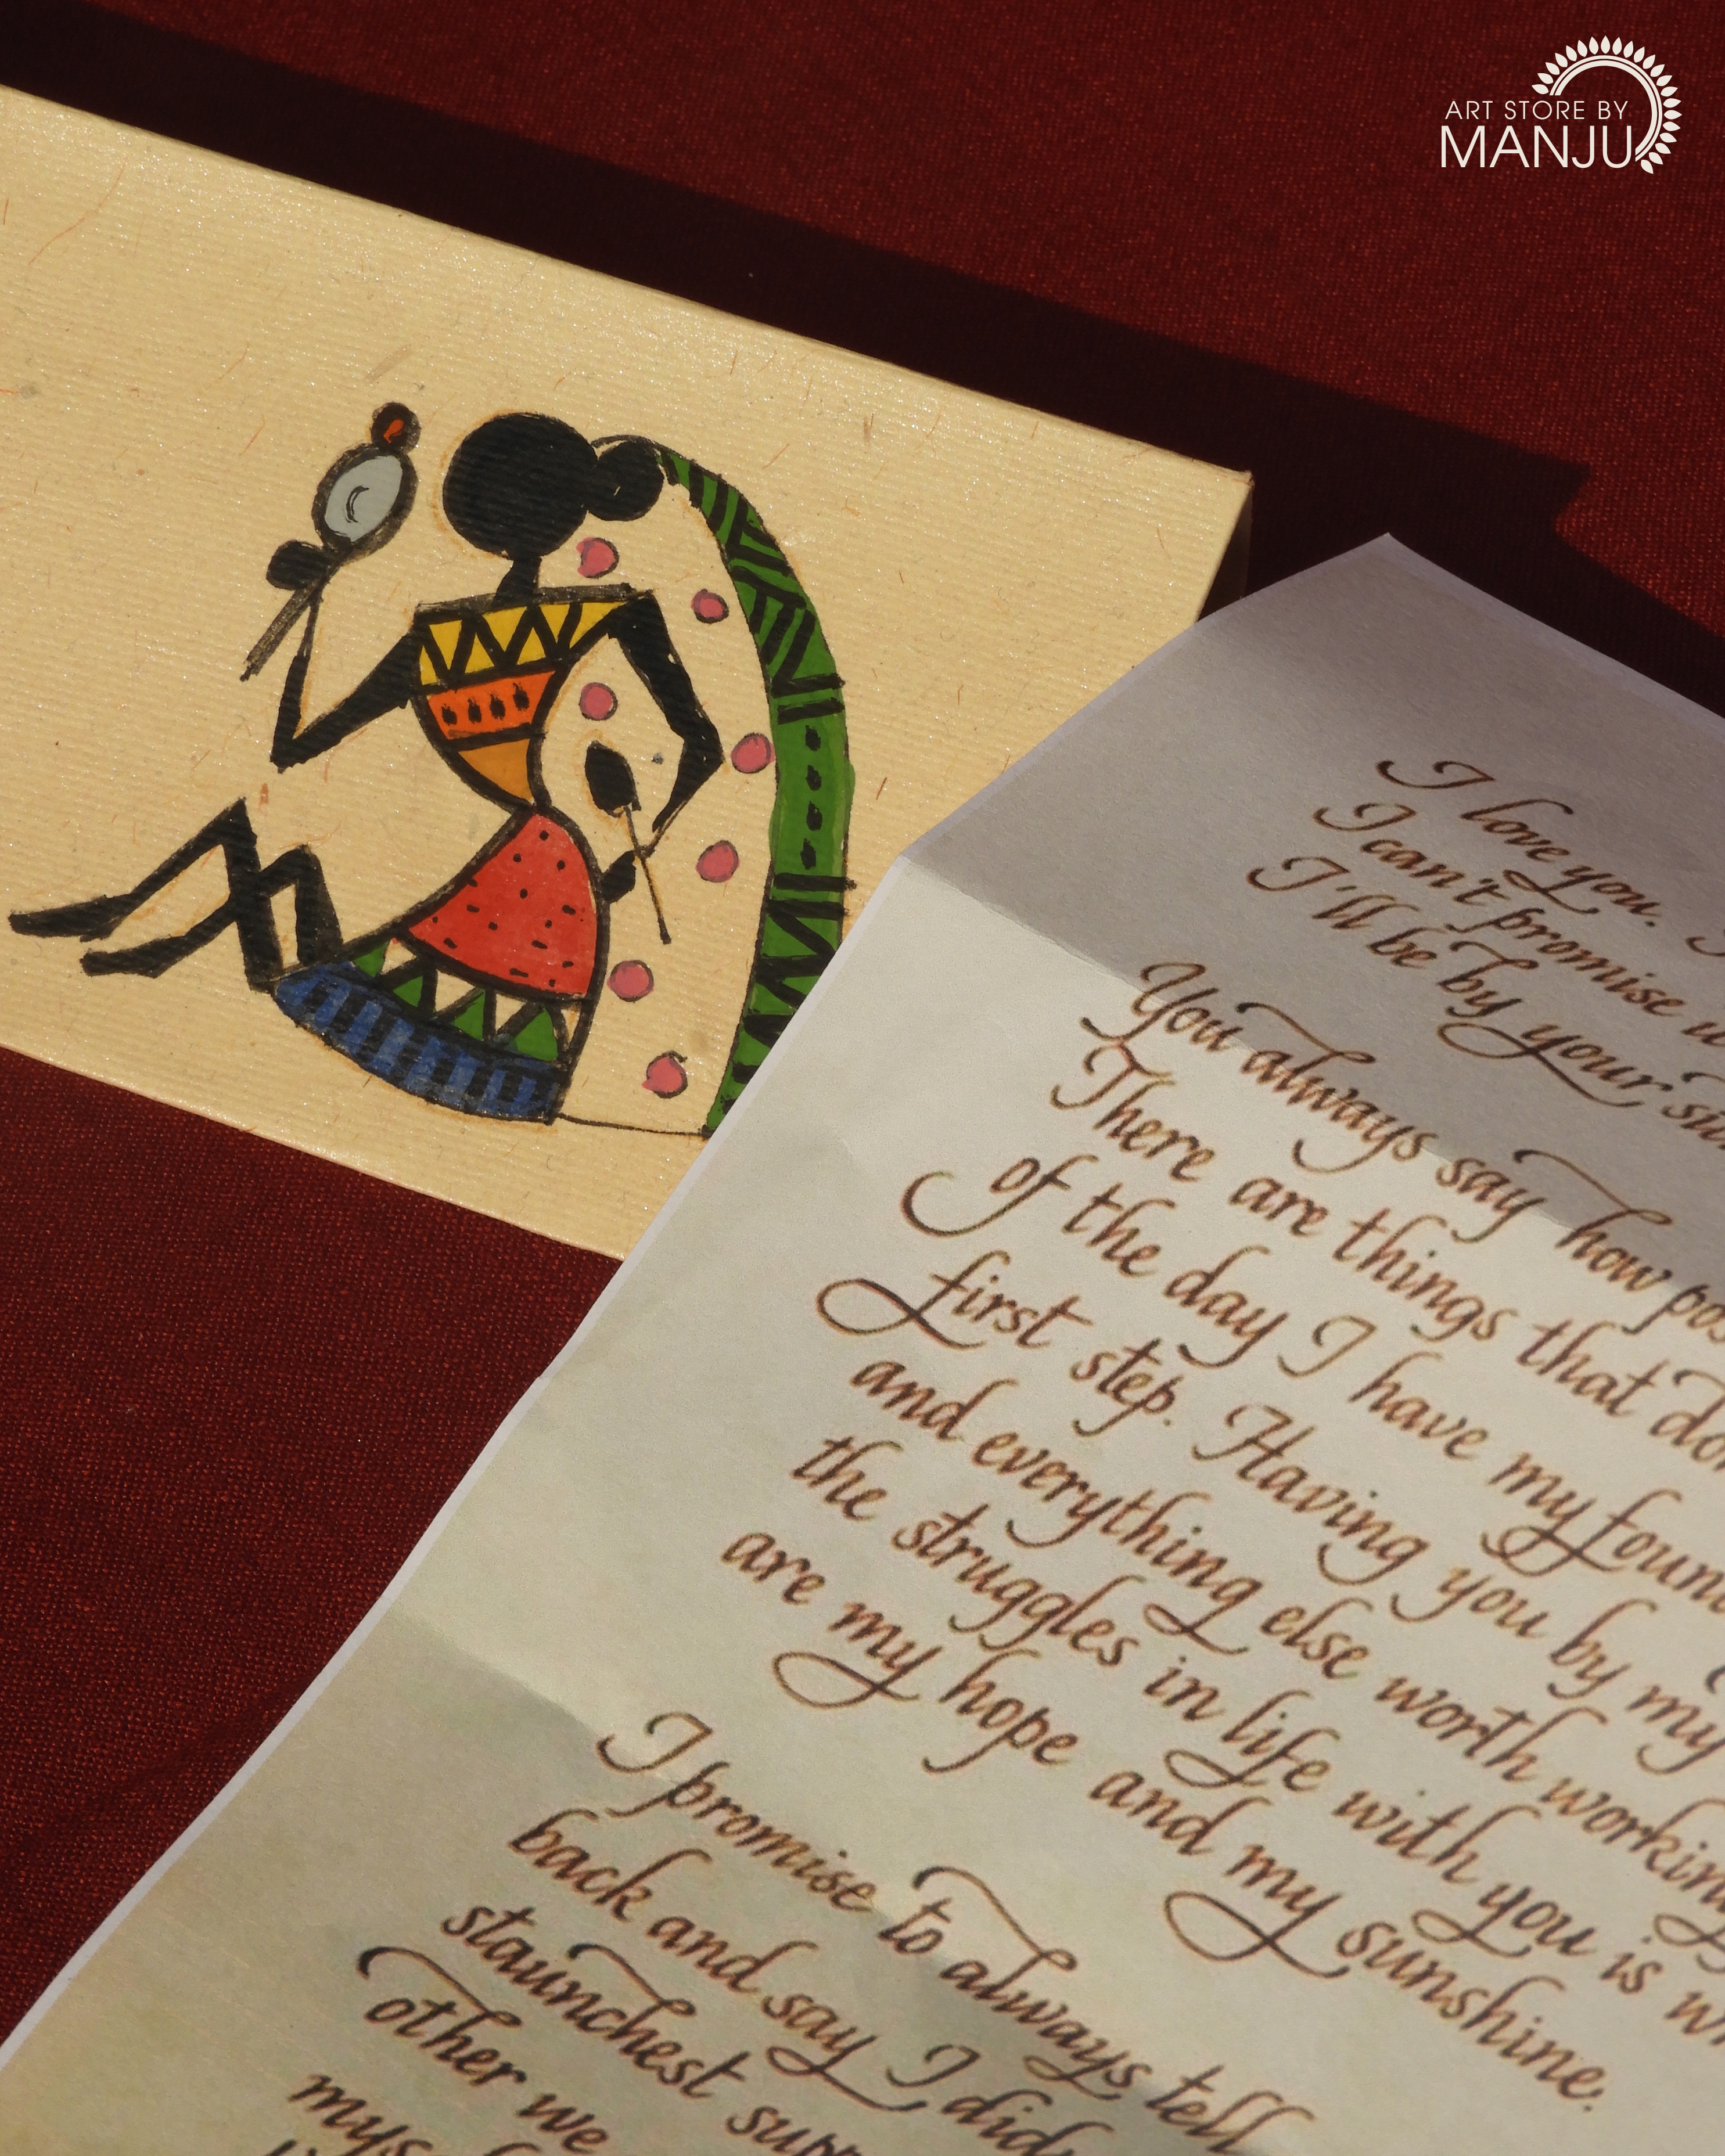 ART STORE BY
MANJU
I love you.
I can't promise
I'll be by your
You always say how
There are things that
of the day I have my
first step. Having you by my
and everything else worth
the struggles in life with you is
are my hope and my sunshine.
I promise to always tell
back and say I
staunchest
other we